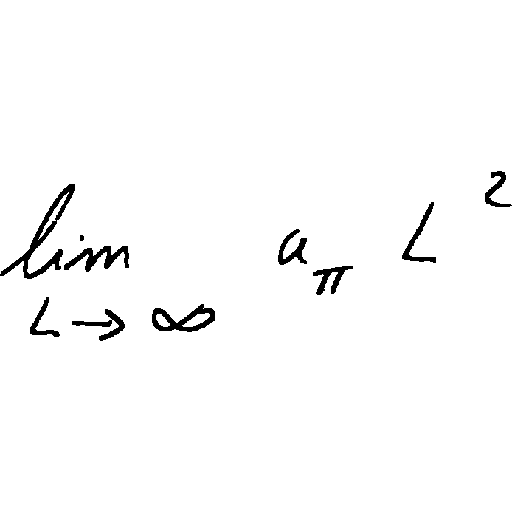 \lim_{L \to \infty} a_{\pi} L^{2}